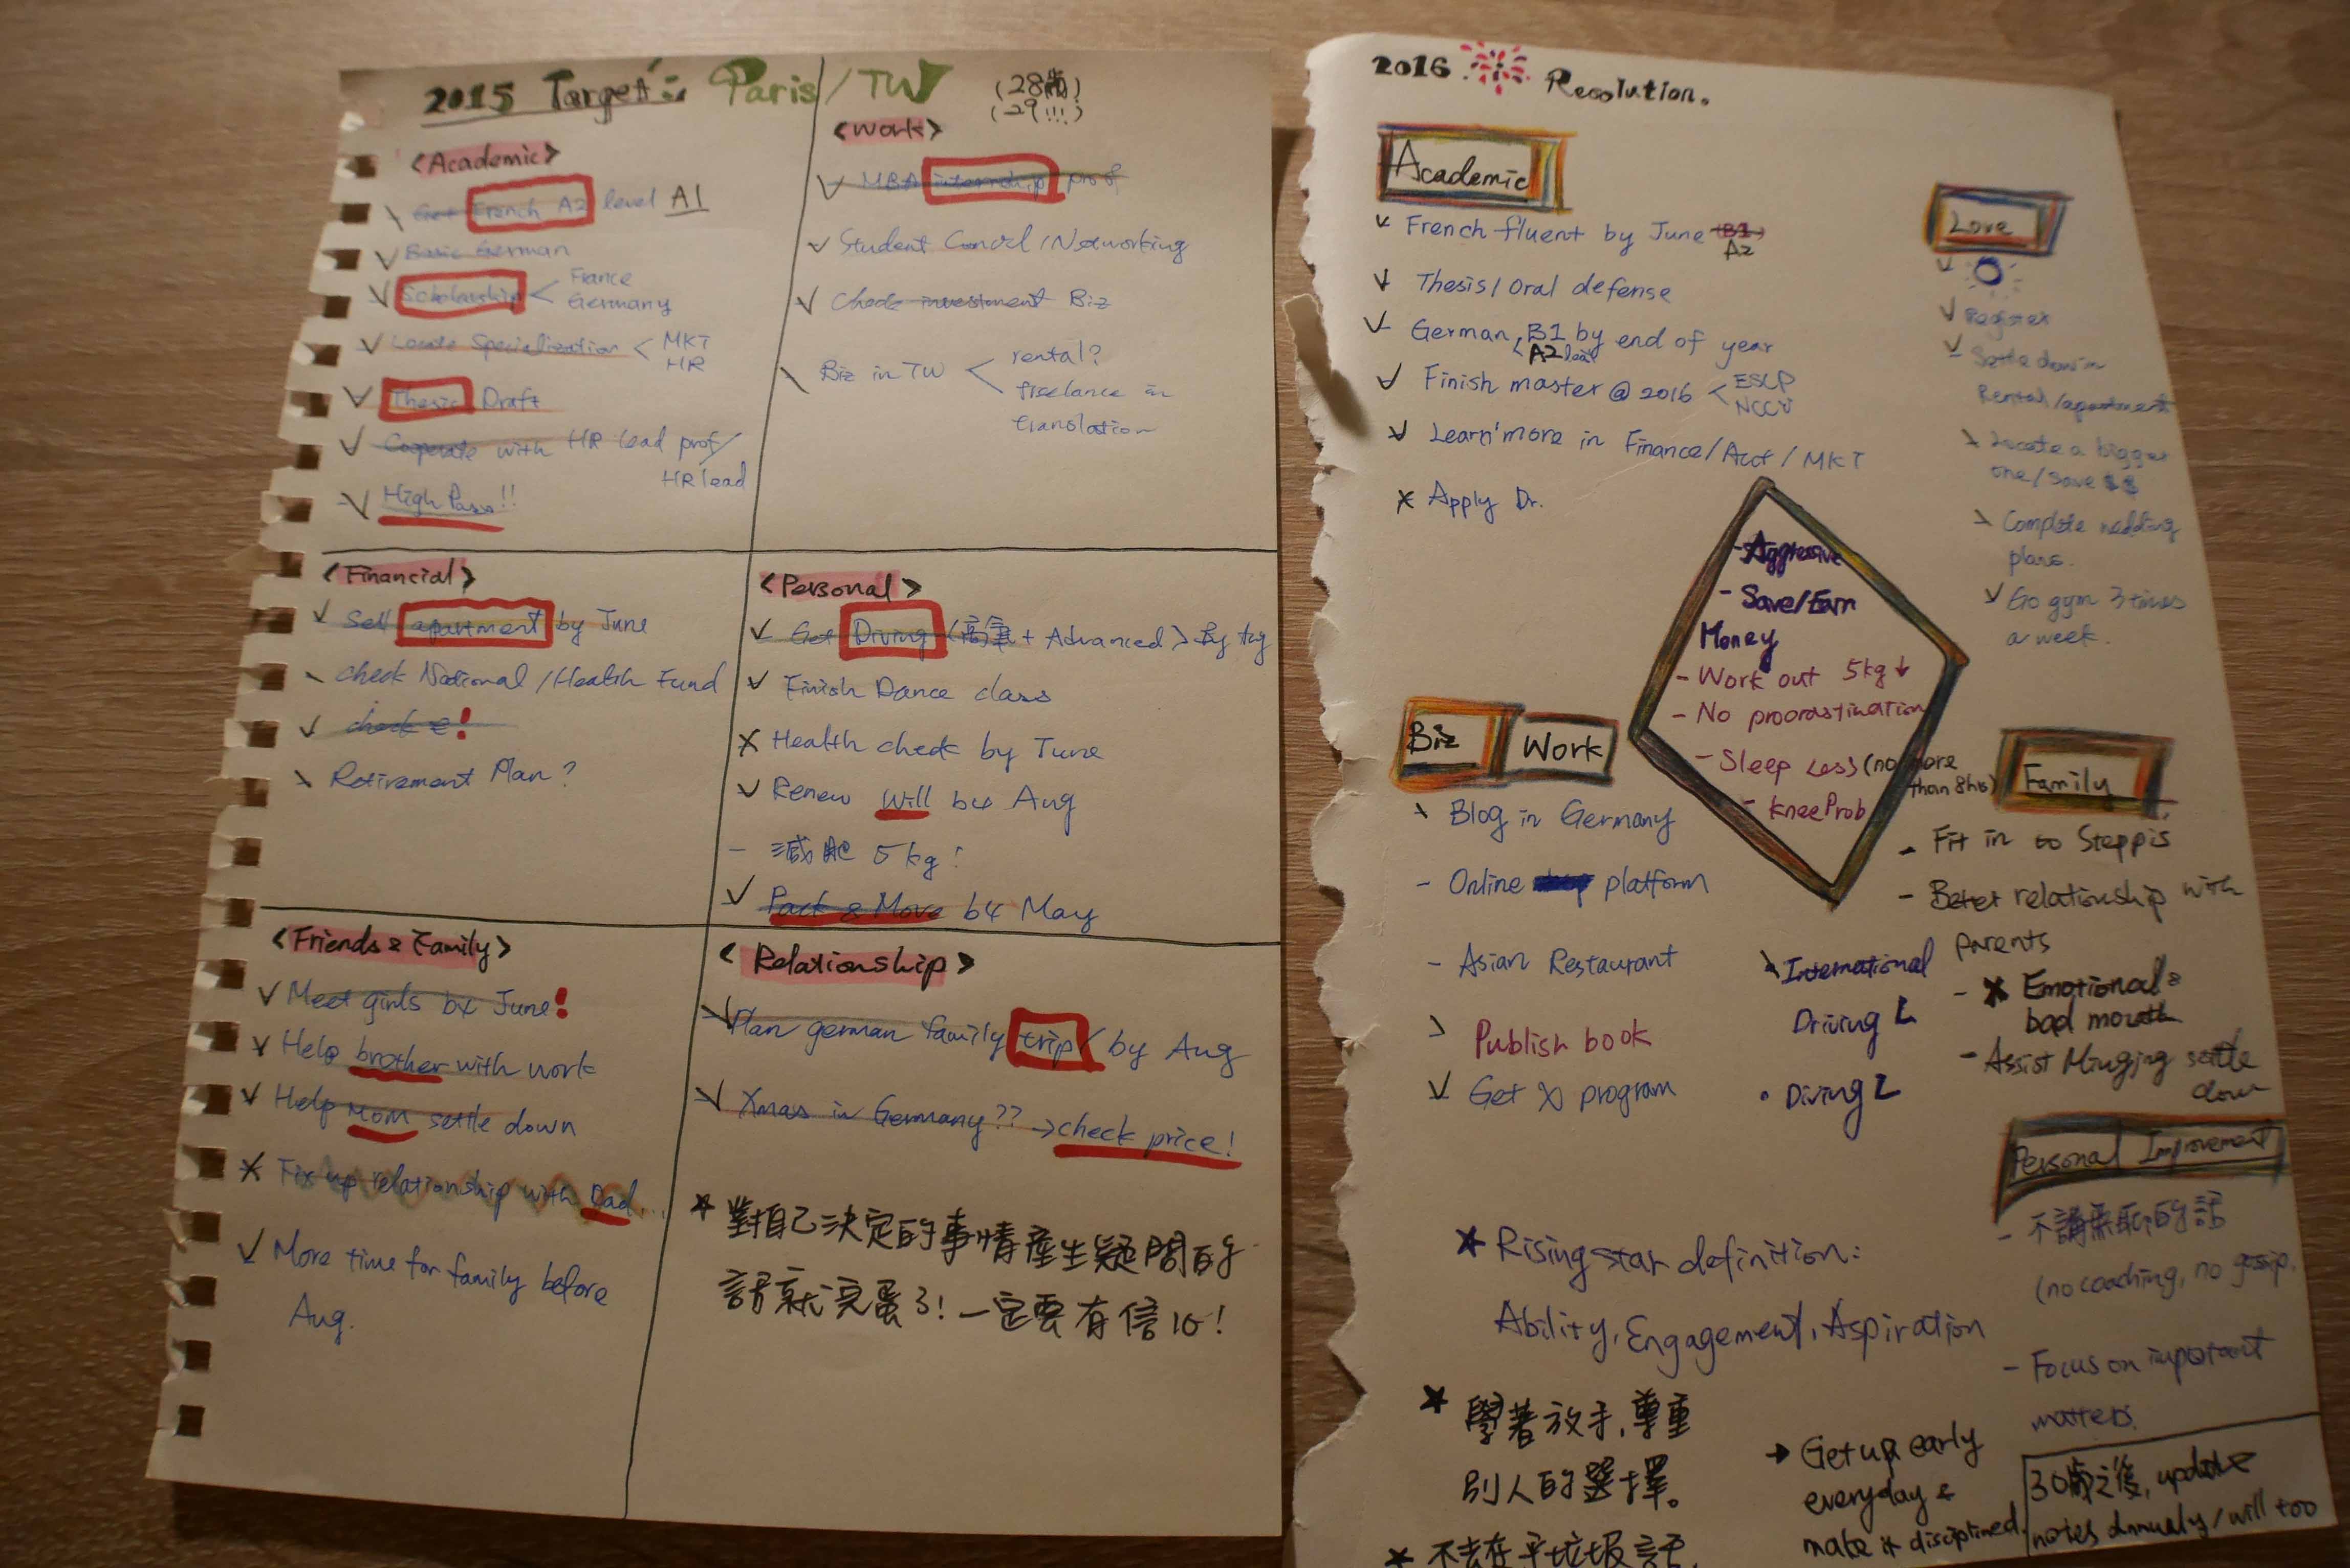 2015 Target: Paris/TW
(28歲)
(29!!!)
<Academic>
Get French A2 level A1
Basic German
Scholarship < France
Germany
Locate Specialization < MKT
HR
Thesis Draft
Cooperate with HR lead prof/
HR lead
High Pass!!
<Work>
MBA internship prof
Student Concil/Networking
Check investment Biz
Biz in TW < rental?
freelance in
translation
<Financial>
Sell apartment by June
check National/Health Fund
check €!
Retirement Plan?
<Personal>
Get Diving (高氧 + Advanced) by
Finish Dance class
Health check by June
Renew Will by Aug
減肥 5kg!
Pack & Move by May
<Friends & Family>
Meet girls by June!
Help brother with work
Help Mom settle down
Fix up relationship with Dad...
More time for family before
Aug.
<Relationship>
Plan german family trip/by Aug
Xmas in Germany?? → check price!
* 對自己決定的事情產生疑問的
話就完蛋了!一定要有信心!
2016 Resolution.
Academic
French fluent by June (B1)
A2
Thesis/Oral defense
German, B1 by end of year
< A2
Finish master @ 2016 < ESCP
NCCU
Learn more in Finance/Acct/MKT
x Apply Dr.
Love
Register
Settle down in
Rental/apartment
Locate a bigger
one/save $$
Complete wedding
plans.
Go gym 3 times
a week.
- Aggressive
- Save/Earn
Money
- Work out 5kg ↓
- No procrastination
- Sleep Less (no more
than 8hrs)
- Knee Prob
Biz Work
Blog in Germany
- Online platform
- Asian Restaurant
Publish book
Get program
International
Driving L
• Diving L
Family
- Fit in to Steppis
- Better relationship with
parents
- x Emotional &
bad mouth
- Assist settle
down
Personal Improvement
- 不講無聊的話
(no coaching, no gossip.
- Focus on important
matters.
* Rising star definition:
Ability, Engagement, Aspiration
* 學著放手,尊重
別人的選擇。
→ Get up early
everyday &
make it disciplined.
30歲之後, update
notes annualy/will too
* 不去在乎垃圾話